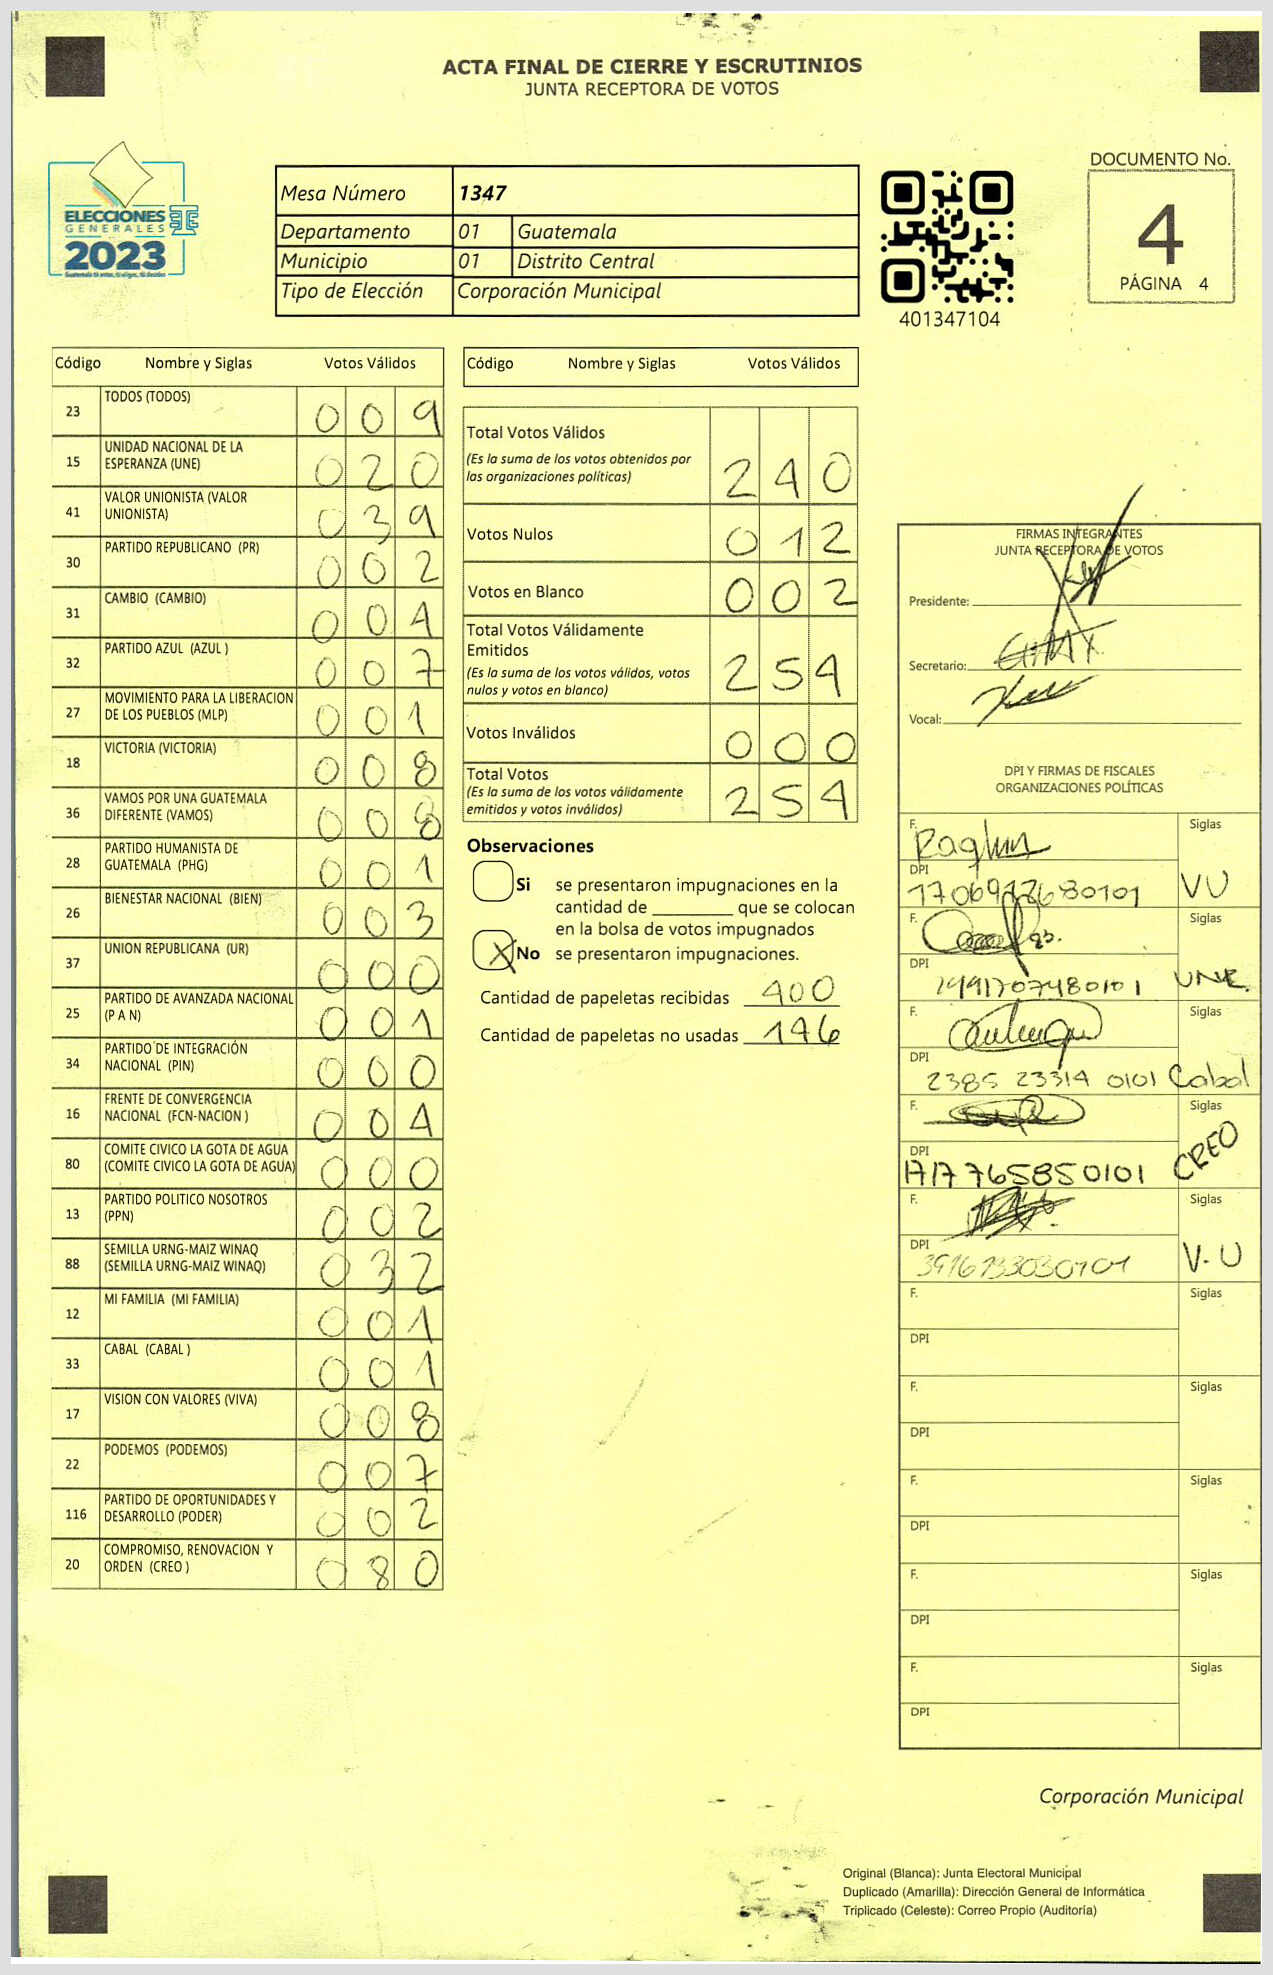 ACTA FINAL DE CIERRE Y ESCRUTINIOS
JUNTA RECEPTORA DE VOTOS
ELECCIONES
GENERALES
2023
Mesa Número 1347
Departamento 01 Guatemala
Municipio 01 Distrito Central
Tipo de Elección Corporación Municipal
401347104
DOCUMENTO No.
4
PÁGINA 4
Código Nombre y Siglas Votos Válidos
23 TODOS (TODOS) 009
15 UNIDAD NACIONAL DE LA ESPERANZA (UNE) 020
41 VALOR UNIONISTA (VALOR UNIONISTA) 039
30 PARTIDO REPUBLICANO (PR) 002
31 CAMBIO (CAMBIO) 004
32 PARTIDO AZUL (AZUL ) 007
27 MOVIMIENTO PARA LA LIBERACION DE LOS PUEBLOS (MLP) 001
18 VICTORIA (VICTORIA) 008
36 VAMOS POR UNA GUATEMALA DIFERENTE (VAMOS) 008
28 PARTIDO HUMANISTA DE GUATEMALA (PHG) 001
26 BIENESTAR NACIONAL (BIEN) 003
37 UNION REPUBLICANA (UR) 000
25 PARTIDO DE AVANZADA NACIONAL (P A N) 001
34 PARTIDO DE INTEGRACIÓN NACIONAL (PIN) 000
16 FRENTE DE CONVERGENCIA NACIONAL (FCN-NACION ) 004
80 COMITE CIVICO LA GOTA DE AGUA (COMITE CIVICO LA GOTA DE AGUA) 000
13 PARTIDO POLITICO NOSOTROS (PPN) 002
88 SEMILLA URNG-MAIZ WINAQ (SEMILLA URNG-MAIZ WINAQ) 032
12 MI FAMILIA (MI FAMILIA) 001
33 CABAL (CABAL ) 001
17 VISION CON VALORES (VIVA) 008
22 PODEMOS (PODEMOS) 007
116 PARTIDO DE OPORTUNIDADES Y DESARROLLO (PODER) 002
20 COMPROMISO, RENOVACION Y ORDEN (CREO ) 080
Código Nombre y Siglas Votos Válidos
Total Votos Válidos 240
(Es la suma de los votos obtenidos por
las organizaciones políticas)
Votos Nulos 012
Votos en Blanco 002
Total Votos Válidamente
Emitidos 254
(Es la suma de los votos válidos, votos
nulos y votos en blanco)
Votos Inválidos 000
Total Votos 254
(Es la suma de los votos válidamente
emitidos y votos inválidos)
Observaciones
Si se presentaron impugnaciones en la
cantidad de ________ que se colocan
en la bolsa de votos impugnados
X No se presentaron impugnaciones.
Cantidad de papeletas recibidas 400
Cantidad de papeletas no usadas 146
FIRMAS INTEGRANTES
JUNTA RECEPTORA DE VOTOS
Presidente:
Secretario:
Vocal:
DPI Y FIRMAS DE FISCALES
ORGANIZACIONES POLÍTICAS
F. Siglas
DPI VU
F. Siglas
DPI UNE.
F. Siglas
DPI 2385 23314 0101 Cabal
F. Siglas
DPI 1717765850101 CREO
F. Siglas
DPI V.U
F. Siglas
DPI
F. Siglas
DPI
F. Siglas
DPI
F. Siglas
DPI
F. Siglas
DPI
Corporación Municipal
Original (Blanca): Junta Electoral Municipal
Duplicado (Amarilla): Dirección General de Informática
Triplicado (Celeste): Correo Propio (Auditoría)